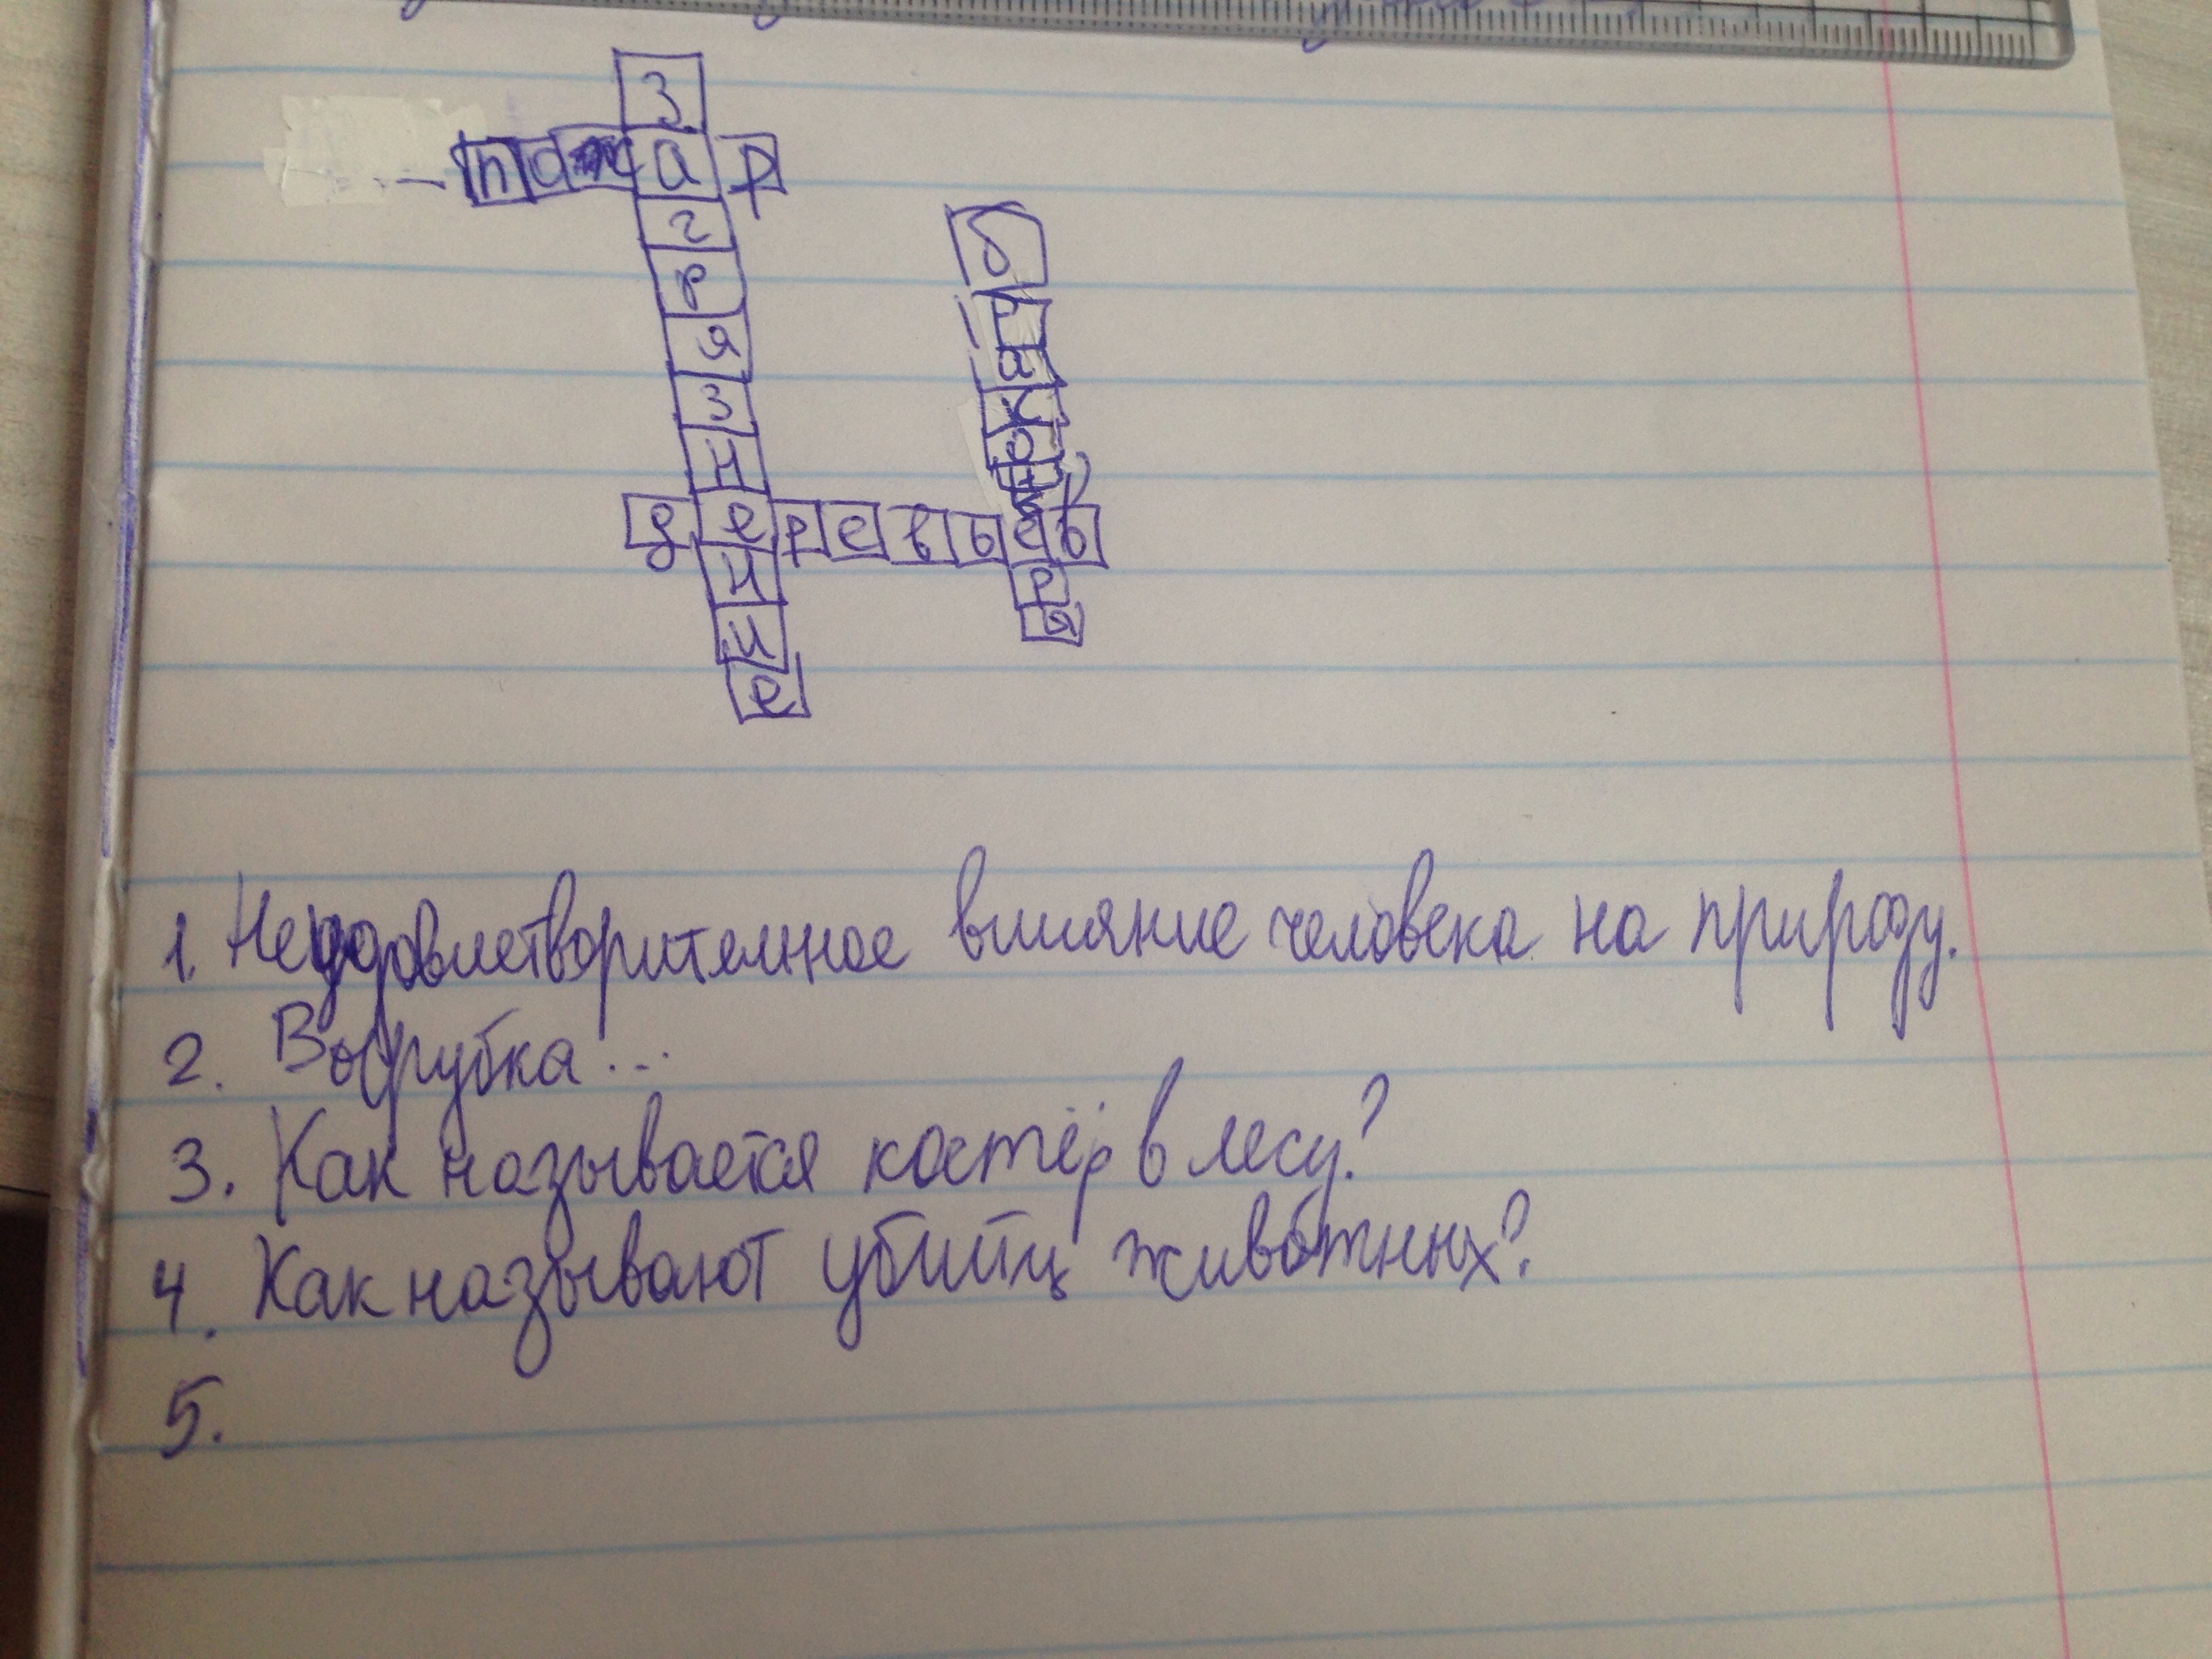 З
пожар
г
р
я
з
н
деревьев
и
и
е
б
р
а
к
о
н
ь
р
я
1. Неудовлетворительное влияние человека на природу.
2. Вырубка...
3. Как называется костёр в лесу?
4. Как называют убийц животных?
5.